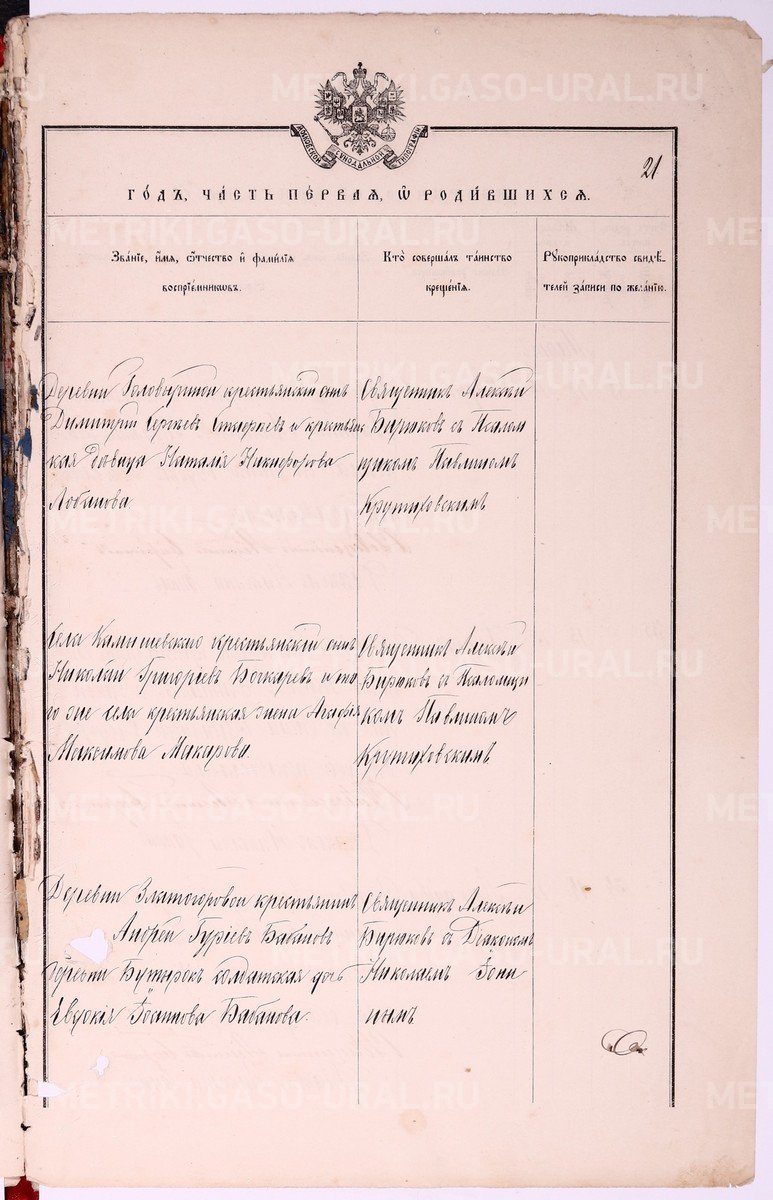 METRIKI.GASO-URAL.RU
МОСКОВСКОЙ СѴНОДАЛЬНОЙ ТИПОГРАФІИ
21
ГОДЪ, ЧАСТЬ ПЕРВАЯ, Ѡ РОДИВШИХСЯ.
Званіе, имя, отчество и фамилія
воспріемниковъ.
Кто совершалъ таинство
крещенія.
Рукоприкладство свидѣ-
телей записи по желанію.
Деревни крестьянскій сынъ
Димитрій Сергѣевъ и крестьян
ская дѣвица Наталія Никифорова
Лобанова.
Священникъ Алексѣй
Бирюковъ съ Псалом
щикомъ Павлиномъ
Крутиховскимъ
Села Камышевскаго крестьянскій сынъ
Николай Григоріевъ Бочкаревъ и то
го же села крестьянская жена Агафія
Максимова Макарова.
Священникъ Алексѣй
Бирюковъ съ Псаломщи
комъ Павлиномъ
Крутиховскимъ
Деревни Златогоровой крестьянинъ
Андрей Гуріевъ Бабановъ
деревни Бутырокъ солдатская дочь
Евдокія Іоаннова Бабанова.
Священникъ Алексѣй
Бирюковъ съ Діакономъ
Николаемъ Іони
нымъ